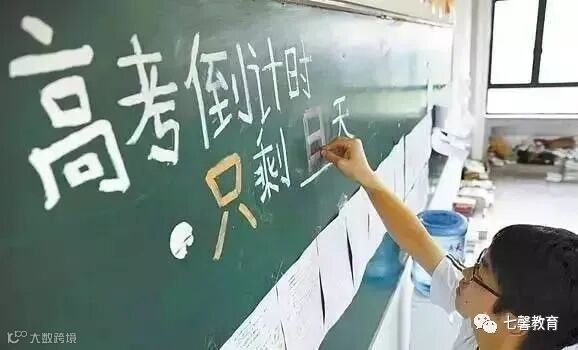 高考倒计时
只剩 天
七馨教育
大数跨境